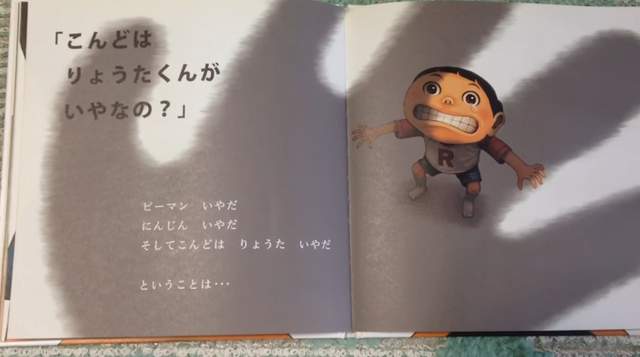 「こんどは
りょうたくんが
いやなの？」
ピーマン　いやだ
にんじん　いやだ
そしてこんどは　りょうた　いやだ
ということは・・・
R